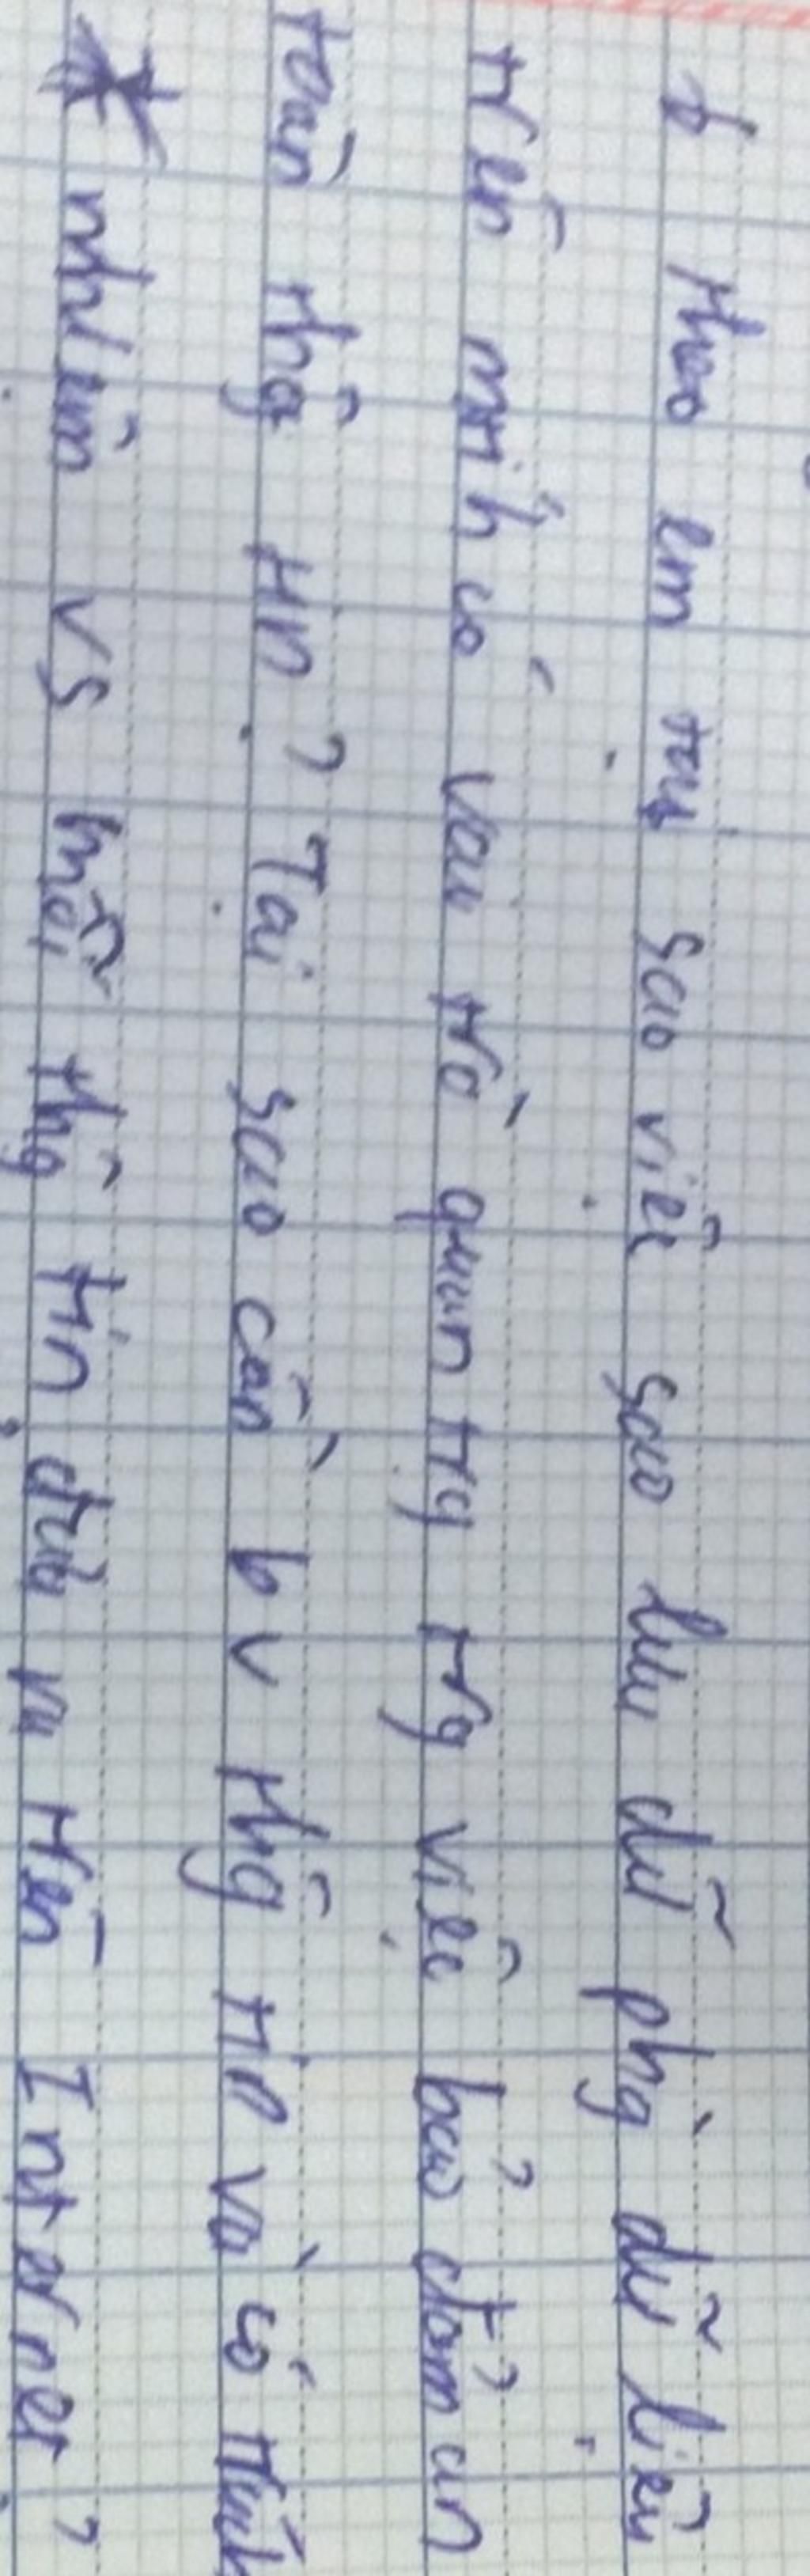 b theo em tại sao việc sao lưu dữ phg̀ dữ liệu
trên máy tính có vai trò quan trg trg việc bảo đảm an
toàn thôg tin? Tại sao cần bv thôg tin và có trách
nhiệm vs mỗi thôg tin đưa ra trên Internet?